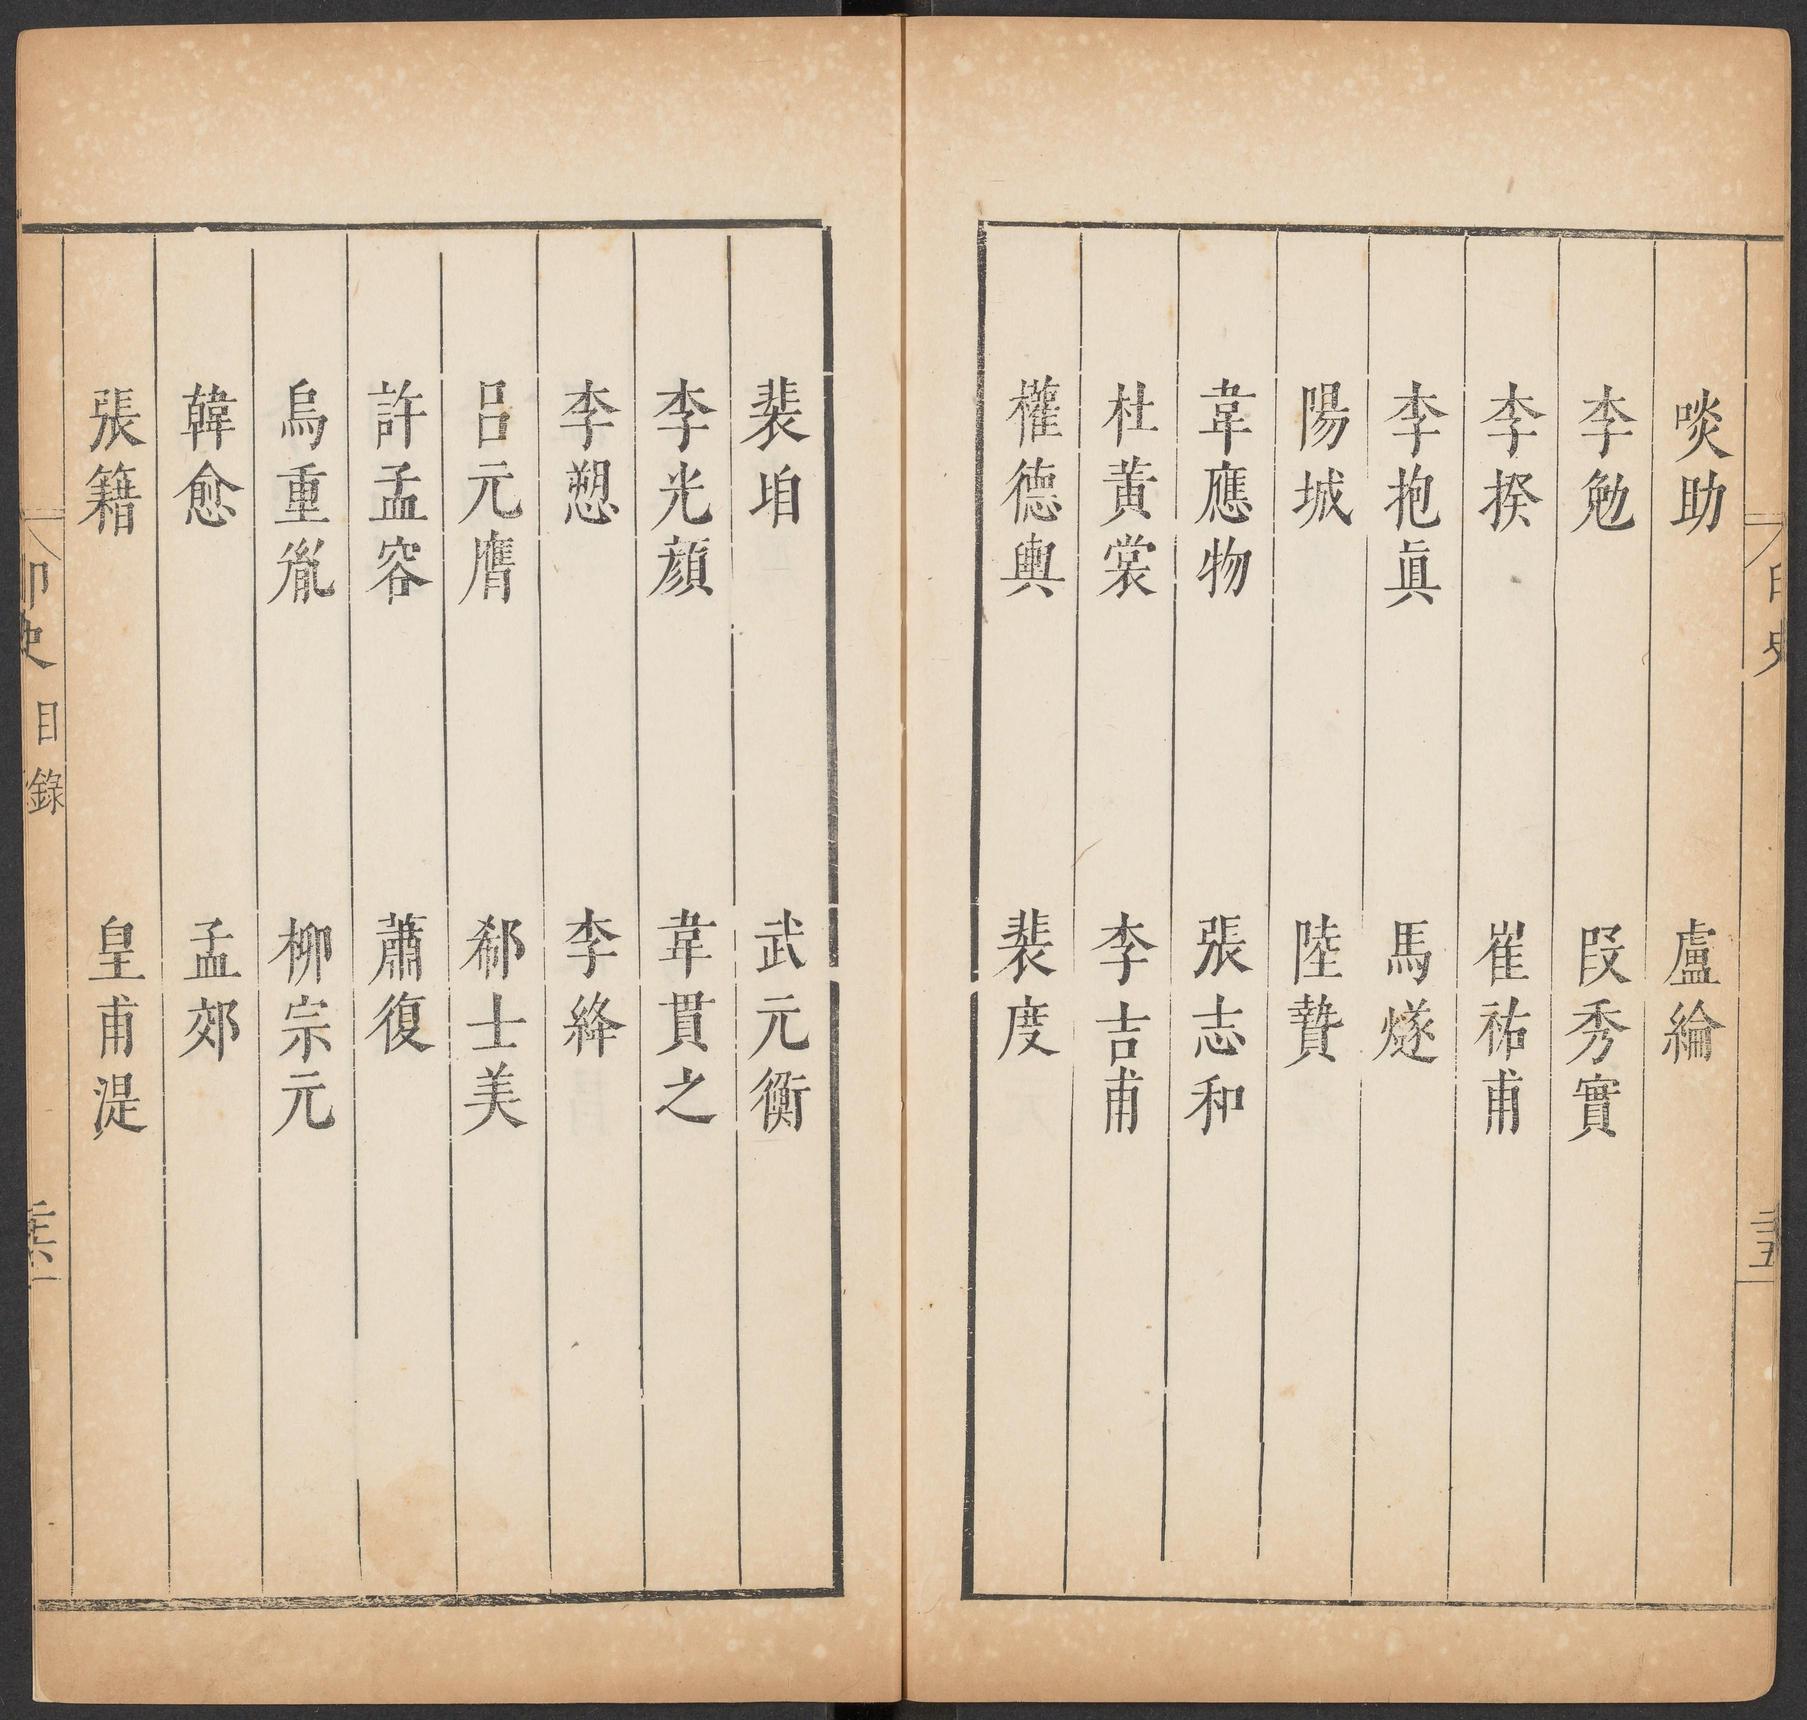 啖助 盧綸
李勉 段秀實
李揆 崔祐甫
李抱真 馬燧
陽城 陸贄
韋應物 張志和
杜黃裳 李吉甫
權德輿 裴度
裴垍 武元衡
李光顏 韋貫之
李愬 李絳
呂元膺 郗士美
許孟容 蕭復
烏重胤 柳宗元
韓愈 孟郊
張籍 皇甫湜
印史 目錄